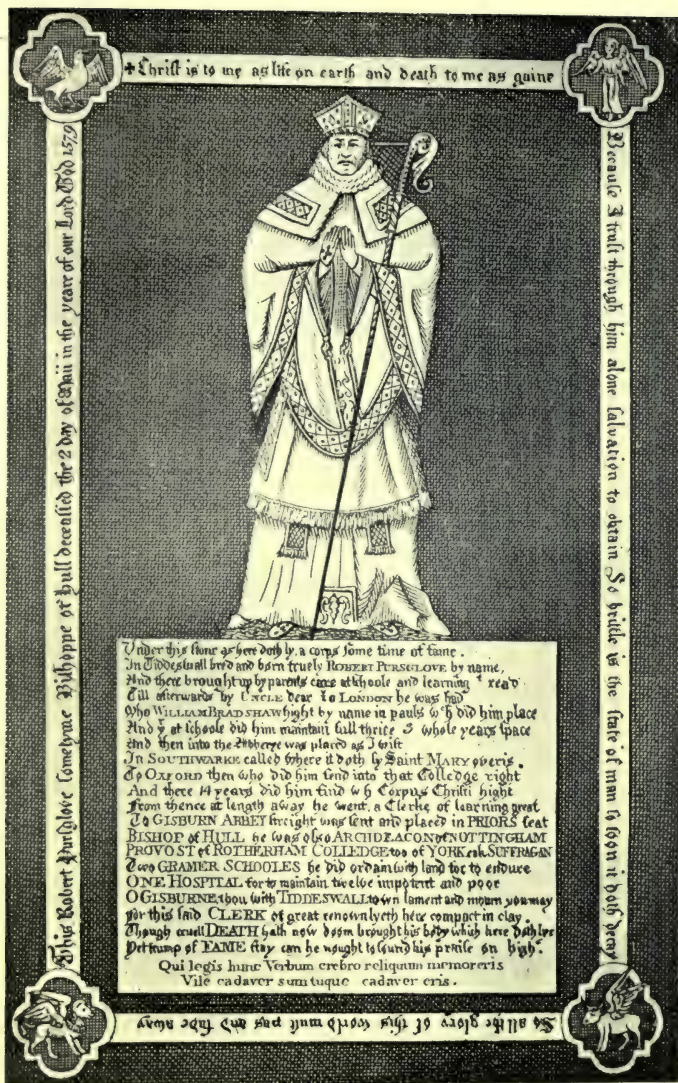 ✚ Christ is to me as life on earth and death to me as gaine
Because I trust through him alone salvation to obtain So brittle is the state of man so soon it doth decay
So all the glory of this world must pas and fade away
This Robert Pursglove sometyme Bishoppe of Hull deceased the 2 day of Maii in the yeare of our Lord God 1579
Under this stone as here doth ly, a corps some time of fame.
In Tiddeswall bred and born truely ROBERT PURSGLOVE by name,
And there brought up by parents care at schoole and learning read
Till afterwards by UNCLE dear to LONDON he was had
Who WILLIAM BRADSHAW hight by name in pauls wh did him place
And y at schoole did him maintain full thrice 3 whole years space
And then into the Abberye was placed as I wish
In SOUTHWARKE called where it doth ly Saint MARY overis.
To OXFORD then who did him send into that Colledge right
And there 14 years did him find wh Corpus Christi hight
From thence at length away he went, a Clerke of learning great
To GISBURN ABBEY streight was sent and placed in PRIORS seat
BISHOP of HULL he was also ARCHDEACON of NOTTINGHAM
PROVOST of ROTHERHAM COLLEDGE too of YORK eak SUFFRAGAN
Two GRAMER SCHOOLES he did ordain with land for to endure
ONE HOSPITAL for to maintain twelve impotent and poor
O GISBURNE thou with TIDDESWALL town lament and mourn you may
for this said CLERK of great renown lyeth here compact in clay
Though cruell DEATH hath now doom brought his body which here doth lye
Yet trump of FAME stay can he nought to sound his praise on high
Qui legis hunc Verbum crebro reliquum memoreris
Vile cadaver sum tuque cadaver eris.